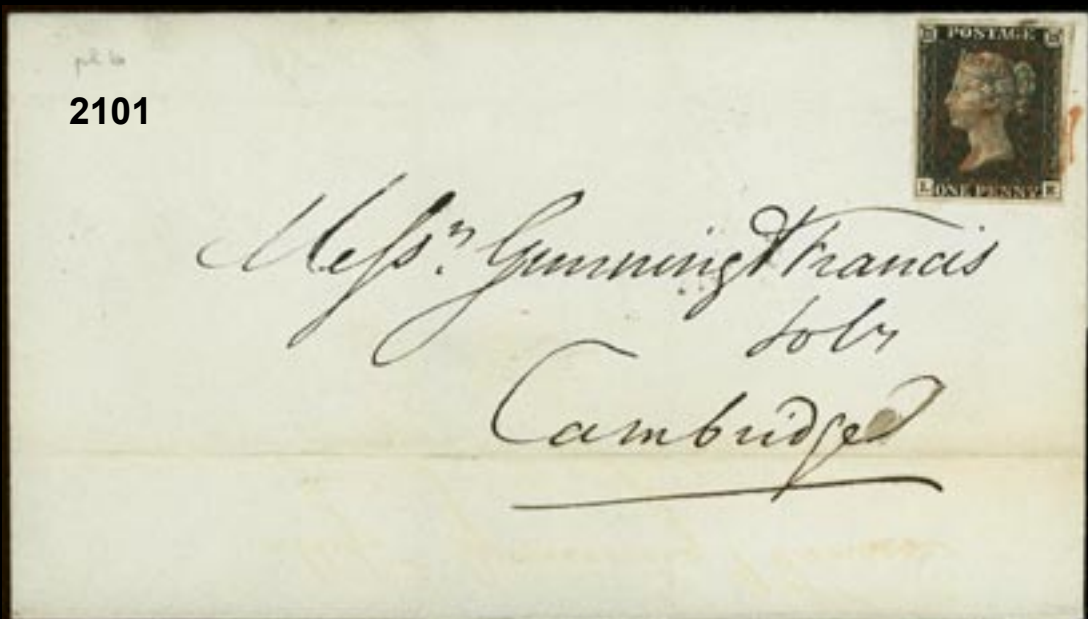 2101
POSTAGE
L ONE PENNY
Messrs. Gunning & Francis
Solrs
Cambridge